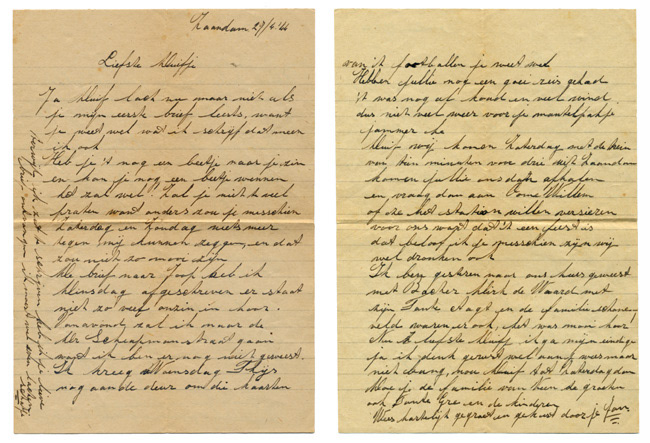 Zaandam 29/4 '44
Liefste kluifje
Ja kluif lach nu maar niet als
je mijn eerste brief leests, want
je weet wel wat ik schrijf dat meen
ik ook
Heb je 't nog er beetje naar je zin
en kan je nog een beetje wennen
het zal wel Zal je niet te veel
praten want anders zou je misschien
Zaterdag en Zondag niets meer
tegen mij kunnen zeggen, en dat
zou niet zo mooi zijn
De brief naar Joop heb ik
Dinsdag afgeschreven er staat
niet zo veel onzin in hoor.
Vanavond zal ik naar de
ter Schaapmanstraat gaan
want ik ben er nog niet geweest.
Ik kreeg Woensdag Thijs
nog aan de deur om die kaarten
terwijl ik zat te schrijven heb ik je
van 't footballen je weet wel
Hebben jullie nog een goei reis gehad
it was nog al koud en veel wind.
dus niet veel weer voor je mantelpakje
jammer he
kluif wij komen Zaterdag met de trein
van tien minuten voor drie uit Zaandam
komen jullie ons dan afhalen
en, vraag dan aan Ome Willem
of ze het station willen versieren
voor ons want dat is een feest is
dat beloof ik je misschien zijn wij
wel dronken ook
Ik ben gisteren naar ons huis geweest
met Bakker Dirk de Waard met
zijn Tante Aagt en de familie
veld waren er ook, het was mooi hoor
Nu liefste kluif ik ga mijn eindige
ja ik denk gerust wel aan je wees maar
niet bang, nou kluif tot Zaterdag dan
doe je de familie van hun de groeten
ook Tante Gre en de kinderen
Wees hartelijk gegroet en gekust door je Jan